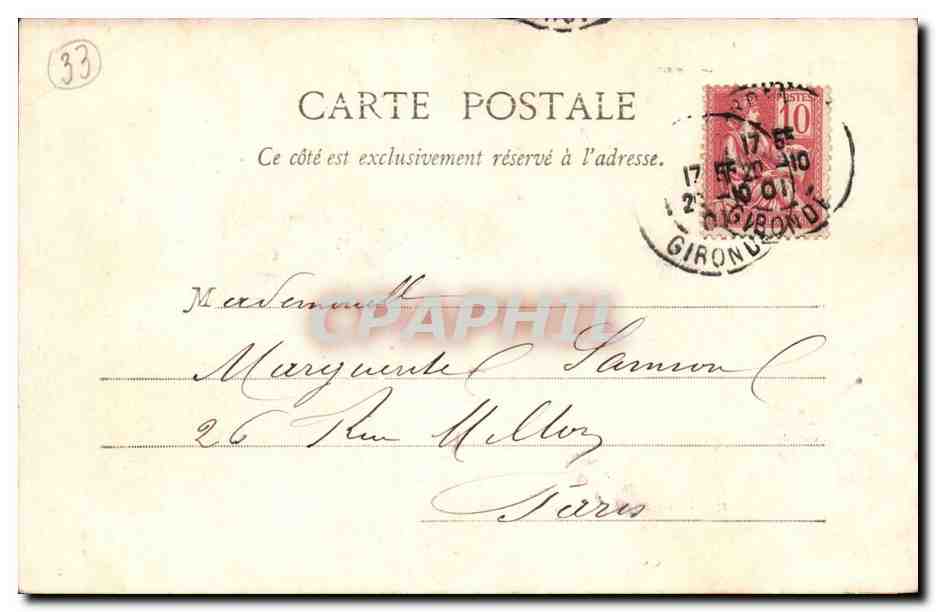 33
CARTE POSTALE
Ce côté est exclusivement réservé à l'adresse.
POSTES
10
17 E
20 -10
01
GIRONDE
17 E
GIRONDE
Mademoiselle
CPAPHIL
Marguerite Samson
26 Rue
Paris